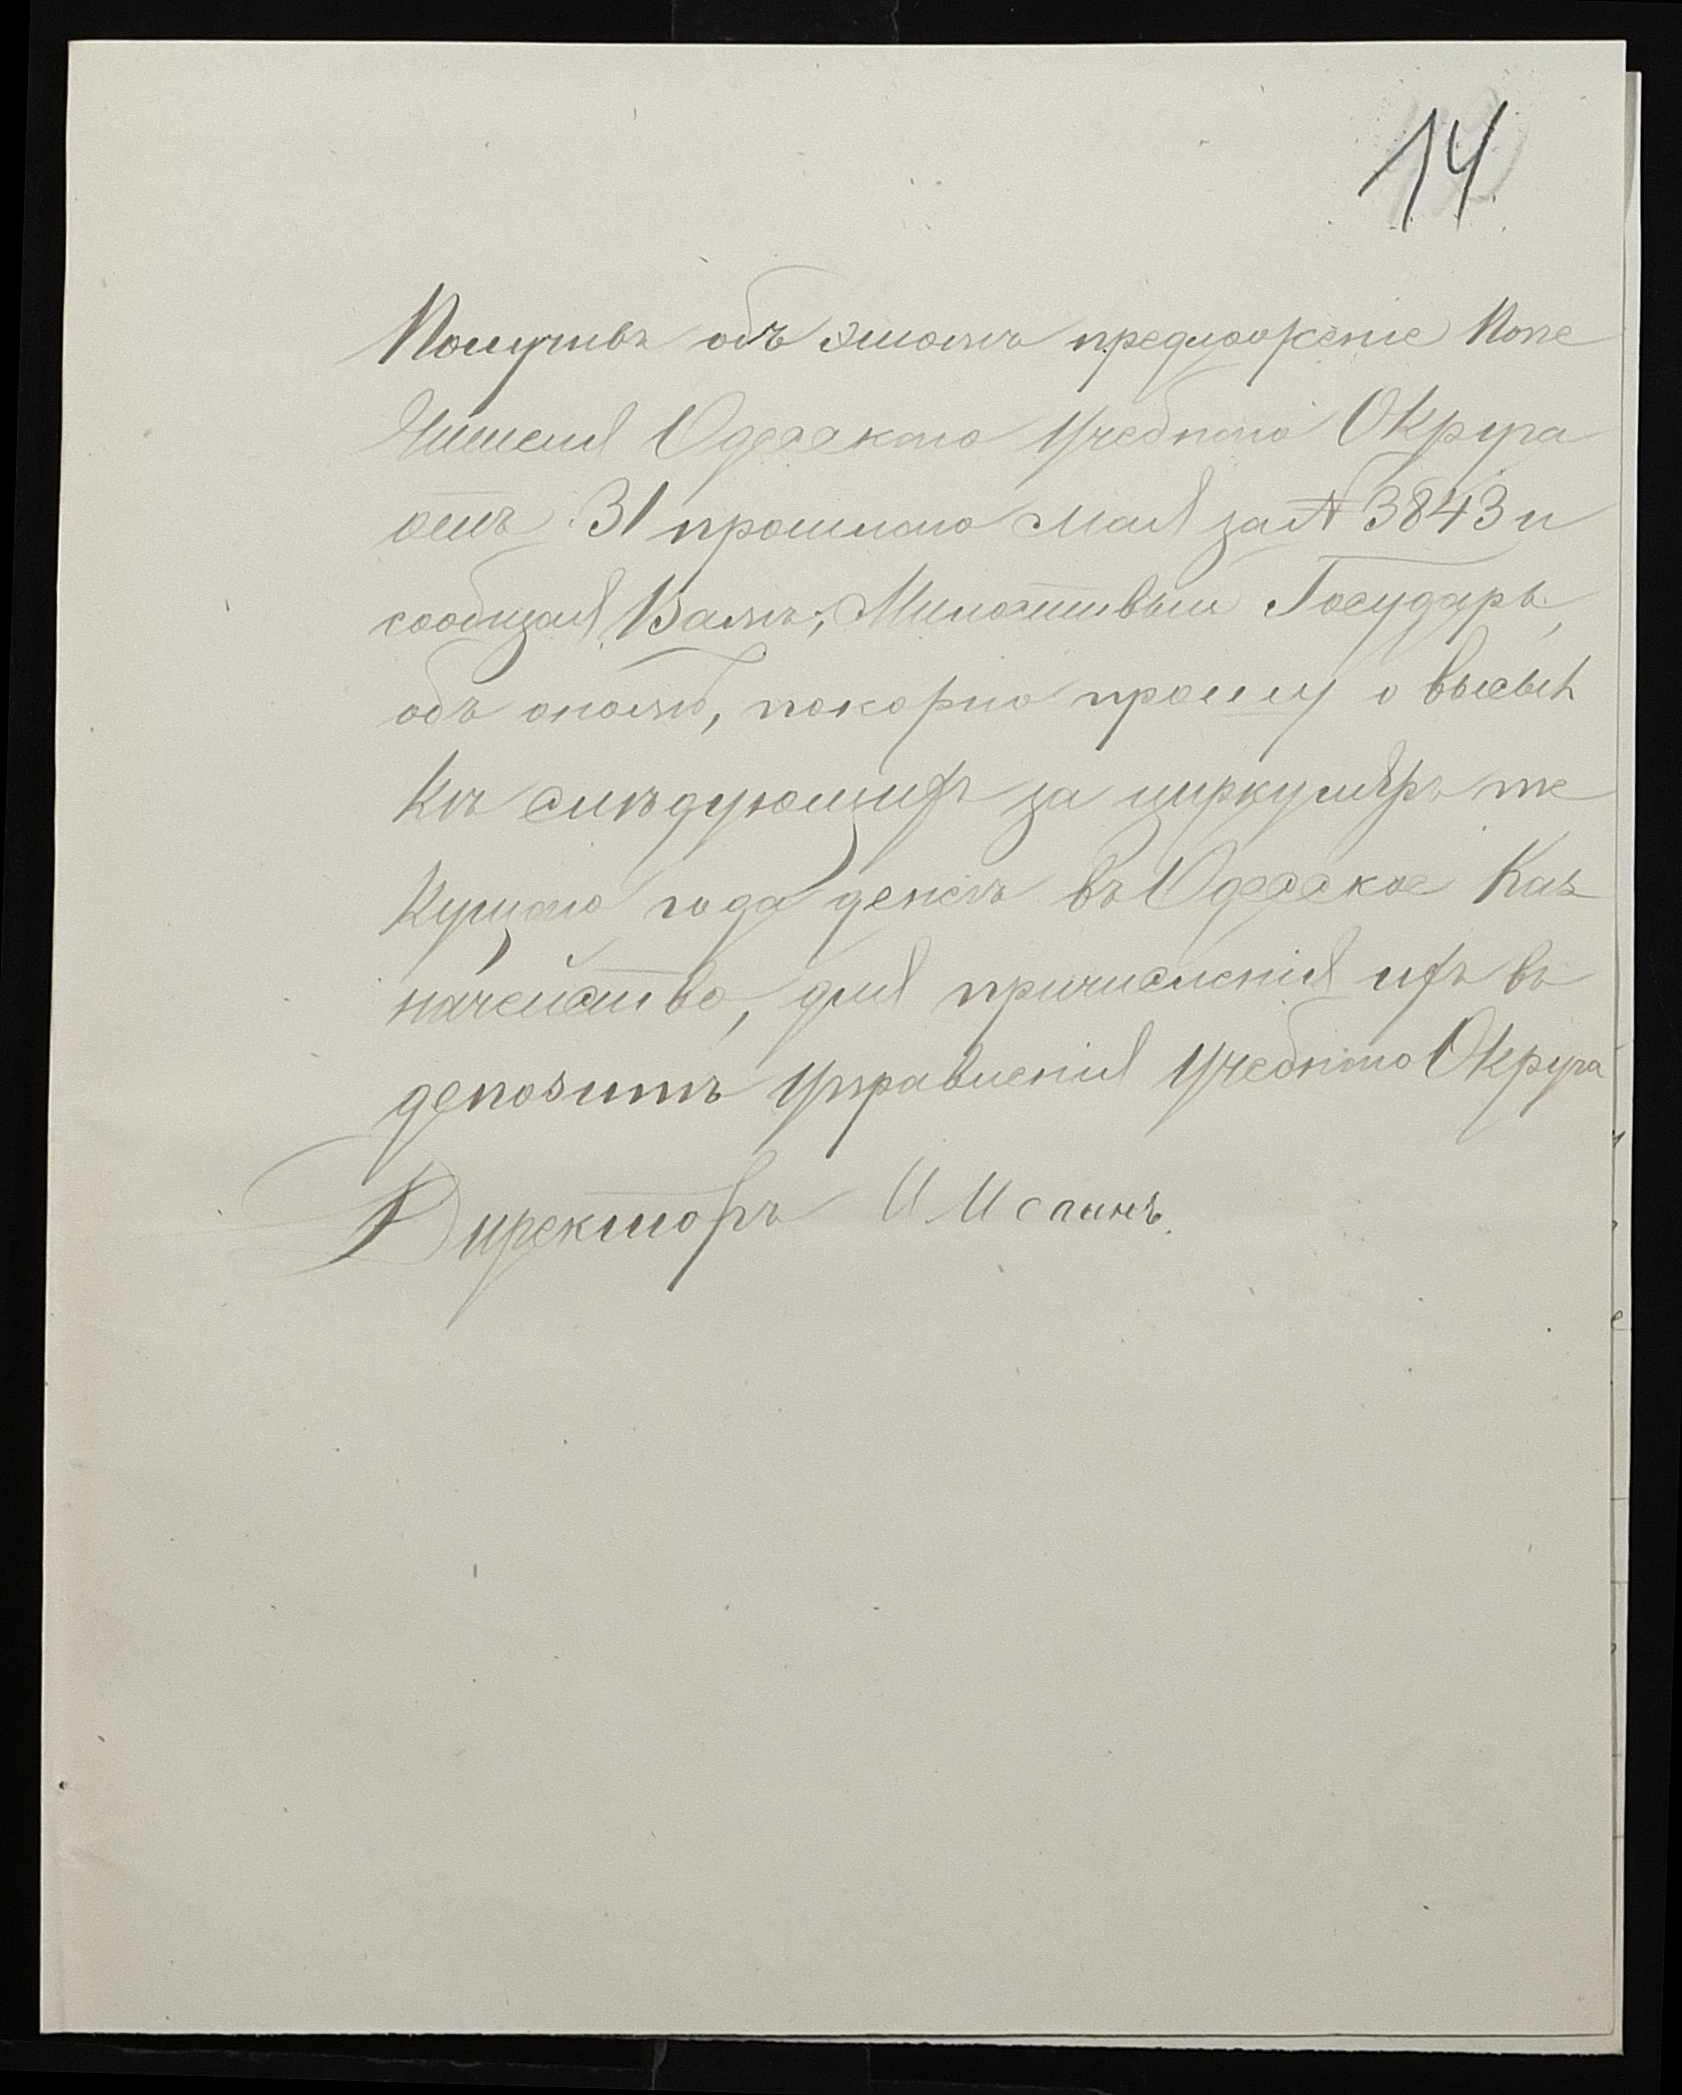 14
Получивъ объ этомъ предложеніе Попе
чителя Одесскаго Учебнаго Округа
отъ 31 прошлаго Мая за № 3843 и
сообщая Вамъ, Милостивый Государь,
объ ономъ, покорно прошу о высыл
кѣ слѣдующихъ за циркуляръ те
кущаго года денегъ въ Одесское Каз
начейство, для причисленія ихъ въ
депозитъ Управленія Учебнаго Округа
Директоръ И